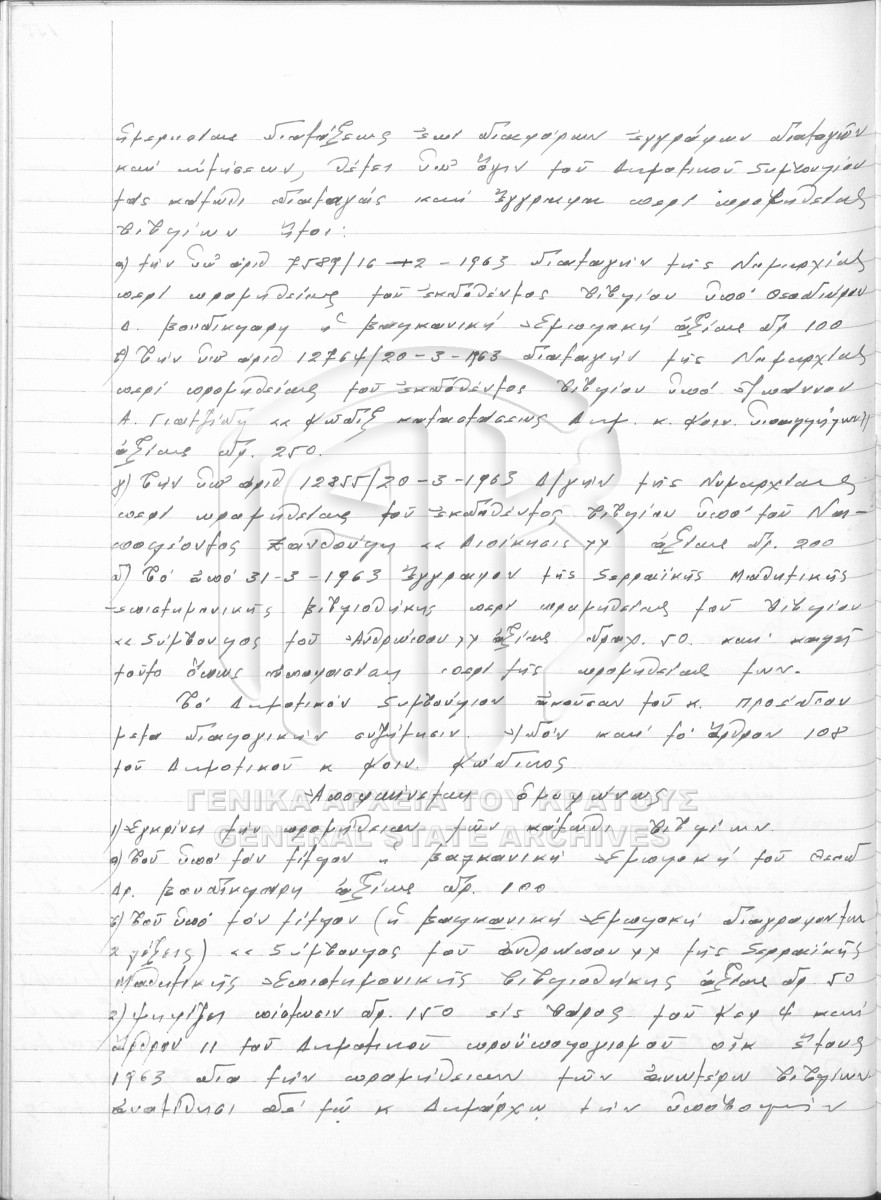 ἡμερησίας διατάξεως ἐπί διαφόρων ἐγγράφων διαταγῶν
καί αἰτήσεων, θέτει ὑπ' ὄψιν τοῦ Δημοτικοῦ Συμβουλίου
τάς κάτωθι διαταγάς καί ἔγγραφα περί προμηθείας
βιβλίων ἤτοι:
α) τήν ὑπ' ἀριθ 7589/16-2-1963 διαταγήν τῆς Νομαρχίας
περί προμηθείας τοῦ ἐκδοθέντος βιβλίου ὑπό Θεοδώρου
Δ. Βουδικλάρη ἡ Βαλκανική Ἐμπλοκή ἀξίας δρ 100
β) Τήν ὑπ' ἀριθ 12764/20-3-1963 διαταγήν τῆς Νομαρχίας
περί προμηθείας τοῦ ἐκδοθέντος βιβλίου ὑπό Ἰωάννου
Α. Γιατζίδη «Κῶδιξ καταστάσεως Δημ. κ. Κοιν. ὑπαλλήλων»
ἀξίας δρ. 250.
γ) Τήν ὑπ' ἀριθ 12355/20-3-1963 Δ/γήν τῆς Νομαρχίας
περί προμηθείας τοῦ ἐκδοθέντος βιβλίου ὑπό τοῦ Να-
πολέοντος Ξανθούλη «Διοίκησις» ἀξίας δρ. 200
δ) Τό ἀπό 31-3-1963 ἔγγραφον τῆς Σερραϊκῆς Μαθητικῆς
ἐπιστημονικῆς βιβλιοθήκης περί προμηθείας τοῦ βιβλίου
«Σύμβουλος τοῦ Ἀνθρώπου» ἀξίας δραχ. 50. καί καλεῖ
τοῦτο ὅπως ἀποφασίσῃ περί τῆς προμηθείας των.
Τό Δημοτικόν Συμβούλιον ἀκοῦσαν τοῦ κ. Προέδρου
μετά διαλογικήν συζήτησιν. Ἰδόν καί τό ἄρθρον 108
τοῦ Δημοτικοῦ κ Κοιν. Κώδικος
Ἀποφαίνεται ὁμοφώνως
1) Ἐγκρίνει τήν προμήθειαν τῶν κάτωθι βιβλίων.
α) Τοῦ ὑπό τόν τίτλον ἡ Βαλκανική Ἐμπλοκή τοῦ Θεοδ
Δρ. Βουδικλάρη ἀξίας δρ. 100
β) Τοῦ ὑπό τόν τίτλον (ἡ Βαλκανική Ἐμπλοκή διαγράφονται
2 λέξεις) «Σύμβουλος τοῦ ἀνθρώπου» τῆς Σερραϊκῆς
Μαθητικῆς Ἐπιστημονικῆς βιβλιοθήκης ἀξίας δρ. 50
2) Ψηφίζει πίστωσιν δρ. 150 εἰς βάρος τοῦ Κεφ 4 καί
ἄρθρου 11 τοῦ Δημοτικοῦ προϋπολογισμοῦ οἰκ ἔτους
1963 διά τήν προμήθειαν τῶν ἀνωτέρω βιβλίων
ἀνατίθησι δέ τῷ κ Δημάρχῳ τήν ὑποβολήν
ΓΕΝΙΚΑ ΑΡΧΕΙΑ ΤΟΥ ΚΡΑΤΟΥΣ
GENERAL STATE ARCHIVES